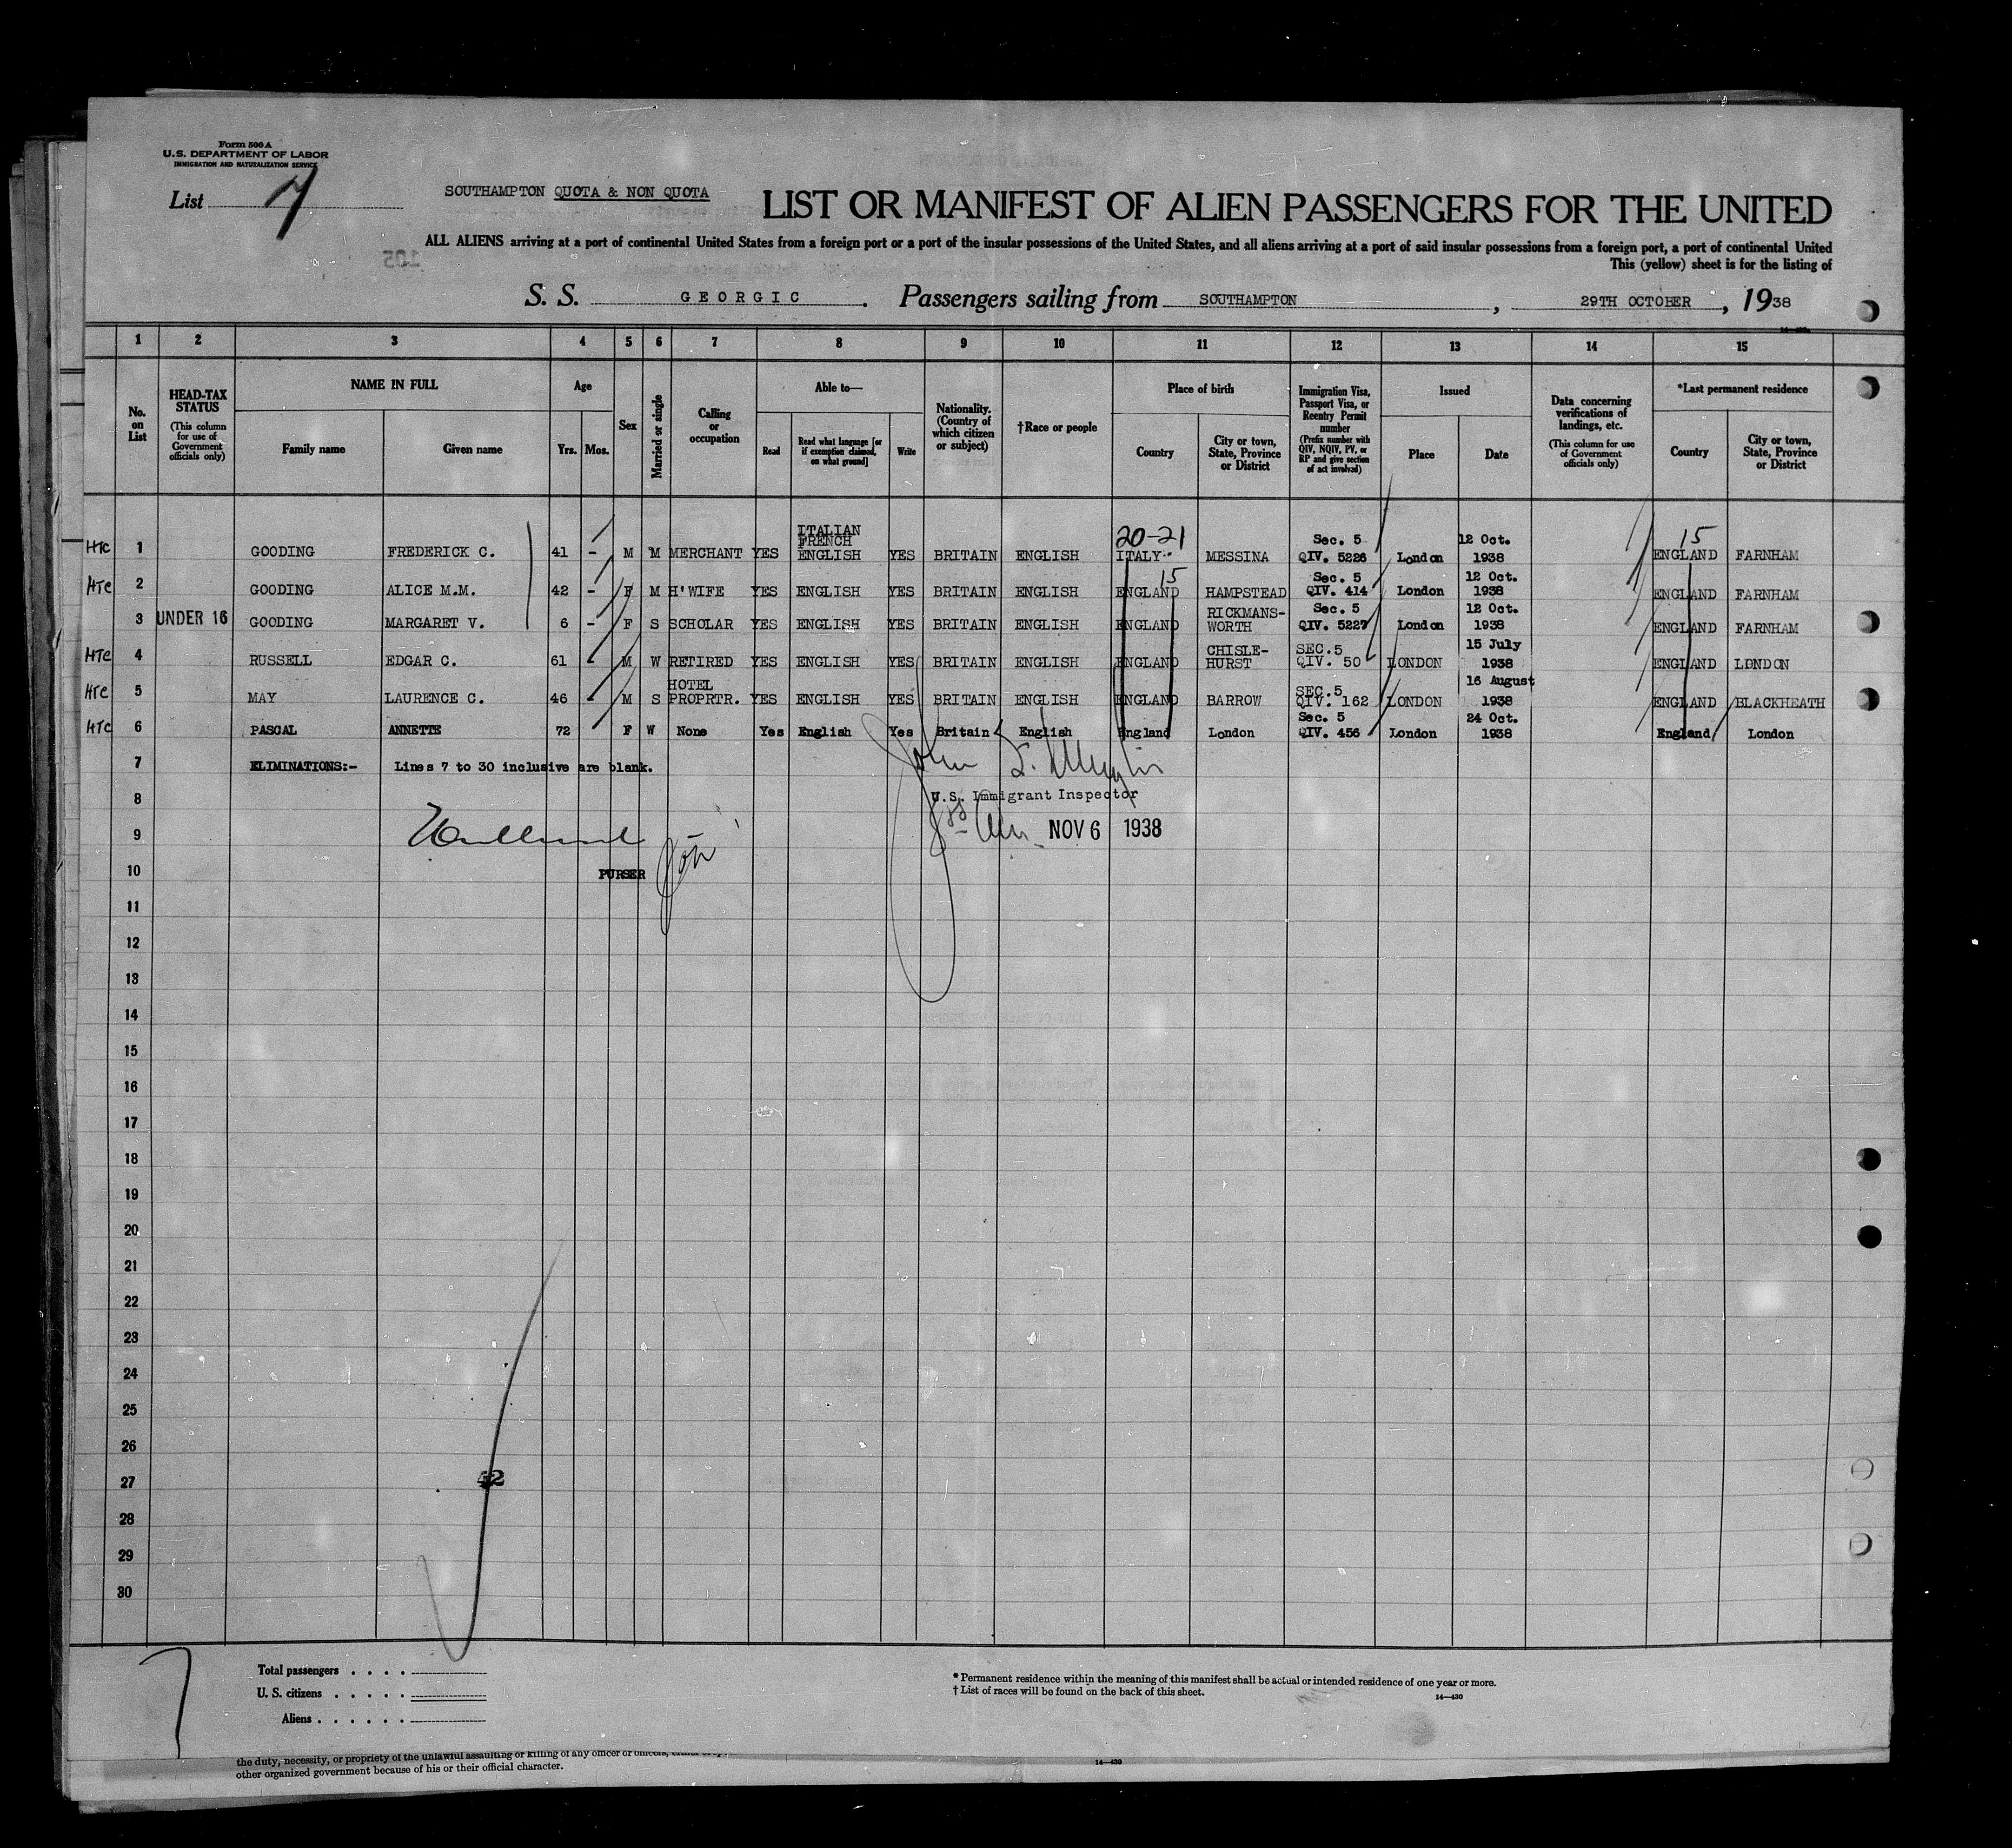 Form 500 A
U.S. DEPARTMENT OF LABOR
IMMIGRATION AND NATURALIZATION SERVICE
List 7
SOUTHAMPTON QUOTA & NON QUOTA
LIST OR MANIFEST OF ALIEN PASSENGERS FOR THE UNITED
ALL ALIENS arriving at a port of continental United States from a foreign port or a port of the insular possessions of the United States, and all aliens arriving at a port of said insular possessions from a foreign port, a port of continental United
This (yellow) sheet is for the listing of
105
S. S. GEORGIC. Passengers sailing from SOUTHAMPTON, 29TH OCTOBER, 1938
1 2 3 4 5 6 7 8 9 10 11 12 13 14 15
No. on List
HEAD-TAX STATUS (This column for use of Government officials only)
NAME IN FULL
Family name Given name
Age
Yrs. Mos.
Sex
Married or single
Calling or occupation
Able to—
Read Read what language [or if exemption claimed, on what ground] Write
Nationality. (Country of which citizen or subject)
†Race or people
Place of birth
Country City or town, State, Province or District
Immigration Visa, Passport Visa, or Reentry Permit number (Prefix number with QIV, NQIV, PV, or RP and give section of act involved)
Issued
Place Date
Data concerning verifications of landings, etc. (This column for use of Government officials only)
*Last permanent residence
Country City or town, State, Province or District
ITALIAN
FRENCH 20-21 Sec. 5 12 Oct. 15
HTC 1 GOODING FREDERICK C. 41 - M M MERCHANT YES ENGLISH YES BRITAIN ENGLISH ITALY MESSINA QIV. 5226 London 1938 ENGLAND FARNHAM
15 Sec. 5 12 Oct.
HTC 2 GOODING ALICE M.M. 42 - F M H'WIFE YES ENGLISH YES BRITAIN ENGLISH ENGLAND HAMPSTEAD QIV. 414 London 1938 ENGLAND FARNHAM
RICKMANS- Sec. 5 12 Oct.
3 UNDER 16 GOODING MARGARET V. 6 - F S SCHOLAR YES ENGLISH YES BRITAIN ENGLISH ENGLAND WORTH QIV. 5227 London 1938 ENGLAND FARNHAM
CHISLE- SEC.5 15 July
HTC 4 RUSSELL EDGAR C. 61 - M W RETIRED YES ENGLISH YES BRITAIN ENGLISH ENGLAND HURST QIV. 50 LONDON 1938 ENGLAND LONDON
HOTEL SEC.5 16 August
HTC 5 MAY LAURENCE C. 46 - M S PROPRTR. YES ENGLISH YES BRITAIN ENGLISH ENGLAND BARROW QIV. 162 LONDON 1938 ENGLAND BLACKHEATH
Sec. 5 24 Oct.
HTC 6 PASCAL ANNETTE 72 F W None Yes English Yes Britain English England London QIV. 456 London 1938 England London
7 ELIMINATIONS:- Lines 7 to 30 inclusive are blank.
John
8 U.S. Immigrant Inspector
9 NOV 6 1938
10 PURSER
11
12
13
14
15
16
17
18
19
20
21
22
23
24
25
26
27 42
28
29
30
7
Total passengers . . . .
U. S. citizens . . . . .
Aliens . . . . . .
* Permanent residence within the meaning of this manifest shall be actual or intended residence of one year or more.
† List of races will be found on the back of this sheet.
14—430
the duty, necessity, or propriety of the unlawful assaulting or killing of any officer or officers,
other organized government because of his or their official character.
14—430